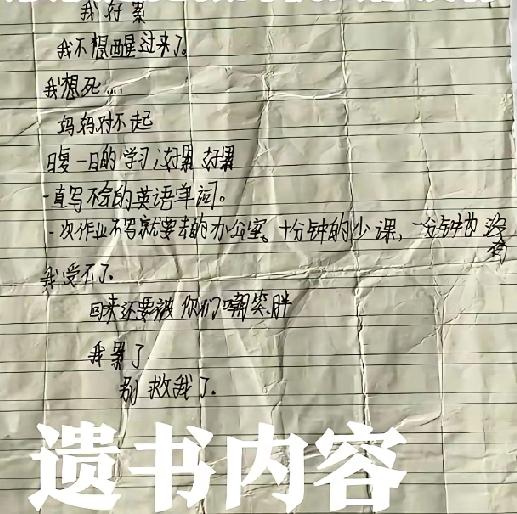 我好累
我不想醒过来了。
我想死...
妈妈对不起
日复一日的学习,好累 好累
一直写不完的英语单词。
一次作业不写就要去的办公室。十分钟的少课,一分钟的没
我受不了。
回来还要被你们嘲笑胖
我累了
别救我了.
遗书内容